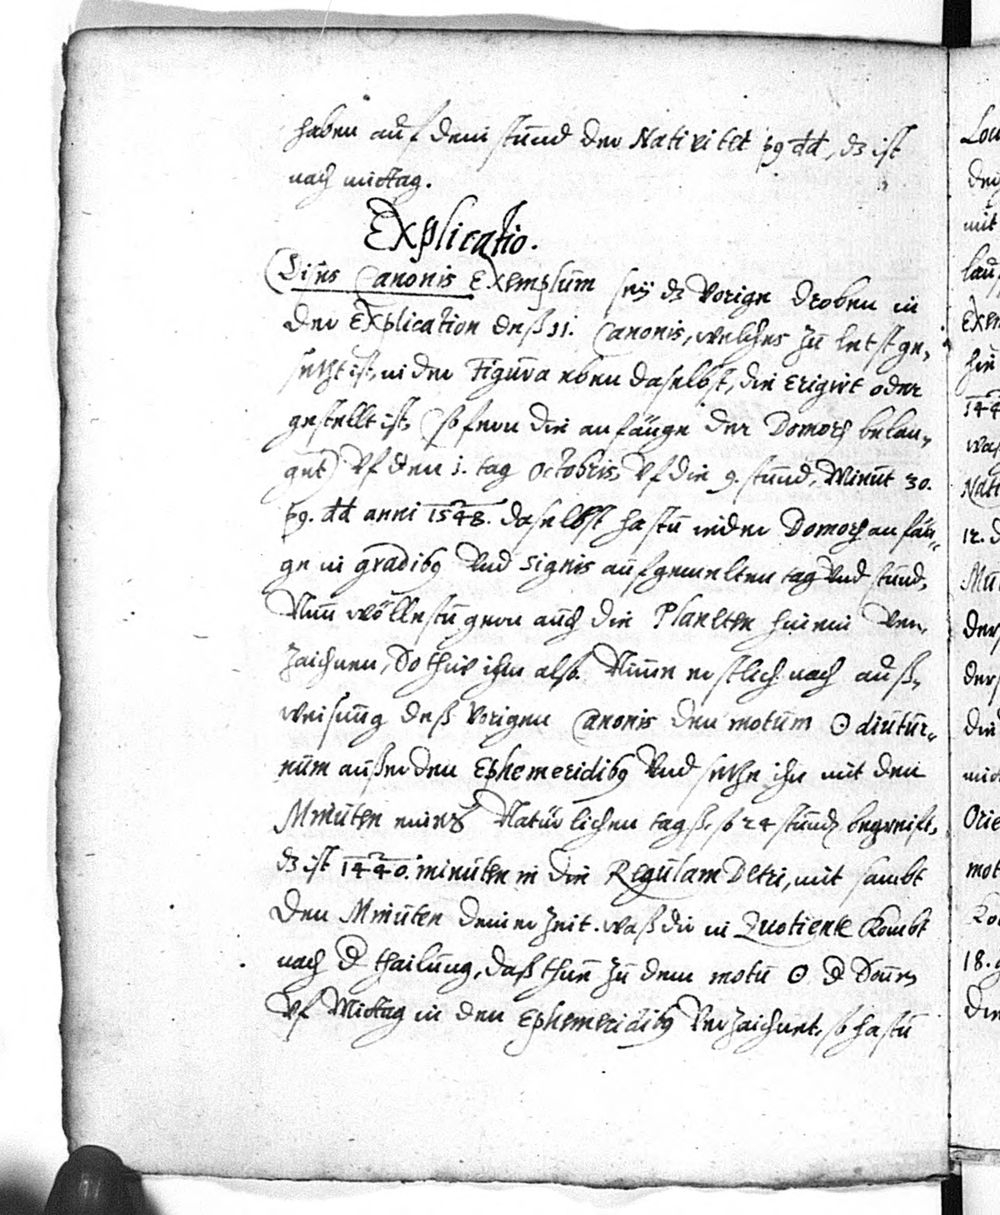 haben auf dem stund der Nativitet p9 dd, dz ist
nach mittag.
Explicatio.
Canonis Exemplum seӱ dz Vorige droben in
der Explication deß 11. Canonis, welches zu letst ge,
setzt ist, in der Figura eben daselbst, die Erigirt oder
gestellt ist, (so fern die anfänge der Domorū belan,
get) Vf den 1. tag Octobris, Vf die 9. stund, Minut 30.
p9. dd anni 1548. daselbst hastu in der Domorū anfän,,
ge in gradib9 Vnd Signis auf gemelten tag Vnd stund,
Nun wöllestu gern auch die Planeten hinein Ver,
zaichnen, So thue ihm also. Nimm erstlich nach auß,
weisung deß Vorigen Canonis den motum ☉ diutur,,
num außer den Ephemeridib9 Vnd setze ihn mit den
Minuten eines Natürlichen tags, so 24 stund begreift,
dz ist 1440. minuten in die Regulam Detri, mit sambt
den Minuten deiner Zeit. waß dir in Quotiente Kombt
nach d thailung, daß thue zu dem motu ☉ d
Vf Mittag in den Ephemeridib9 Verzaichnet, so hastu